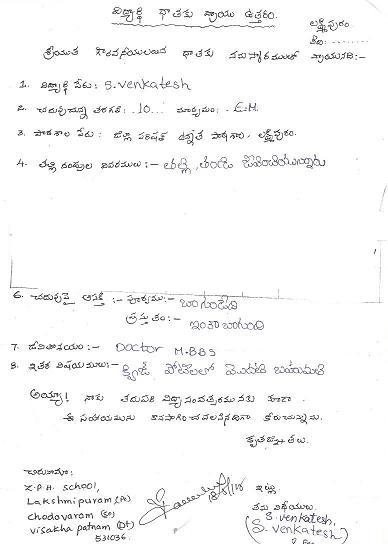 విద్యార్థి దాతకు వ్రాయు ఉత్తరం.
లక్ష్మీపురం.
తేది:
శ్రీయుత గౌరవనీయులయిన దాతకు నమస్కారములతో వ్రాయునది:-
1. విద్యార్థి పేరు: S.venkatesh
2. చదువుచున్న తరగతి: 10... మాధ్యమం: E.M.
3. పాఠశాల పేరు: జిల్లా పరిషత్ ఉన్నత పాఠశాల, లక్ష్మీపురం.
4. తల్లి దండ్రుల వివరములు:- తల్లి, తండ్రి జీవించియున్నారు
6. చదువుపై ఆసక్తి :- పూర్వము:- బాగుండేది
ప్రస్తుతం:- ఇంకా బాగుంది
7. జీవితాశయం:- Doctor M.BBS
8. ఇతర విషయములు:- క్విజ్ పోటీలలో మొదటి బహుమతి
అయ్యా! నాకు తరువాతి విద్యాసంవత్సరమునకు కూడా
ఈ సహాయమును కొనసాగించవలసినదిగా కోరుచున్నాను.
కృతజ్ఞతలు.
చిరునామా:
Z.P.H. School,
Lakshmipuram (Po)
Chodavaram (so)
Visakha patnam (Dt)
531036.
ఇట్లు
తమ విధేయులు
S.venkatesh,
(S. Venkatesh,